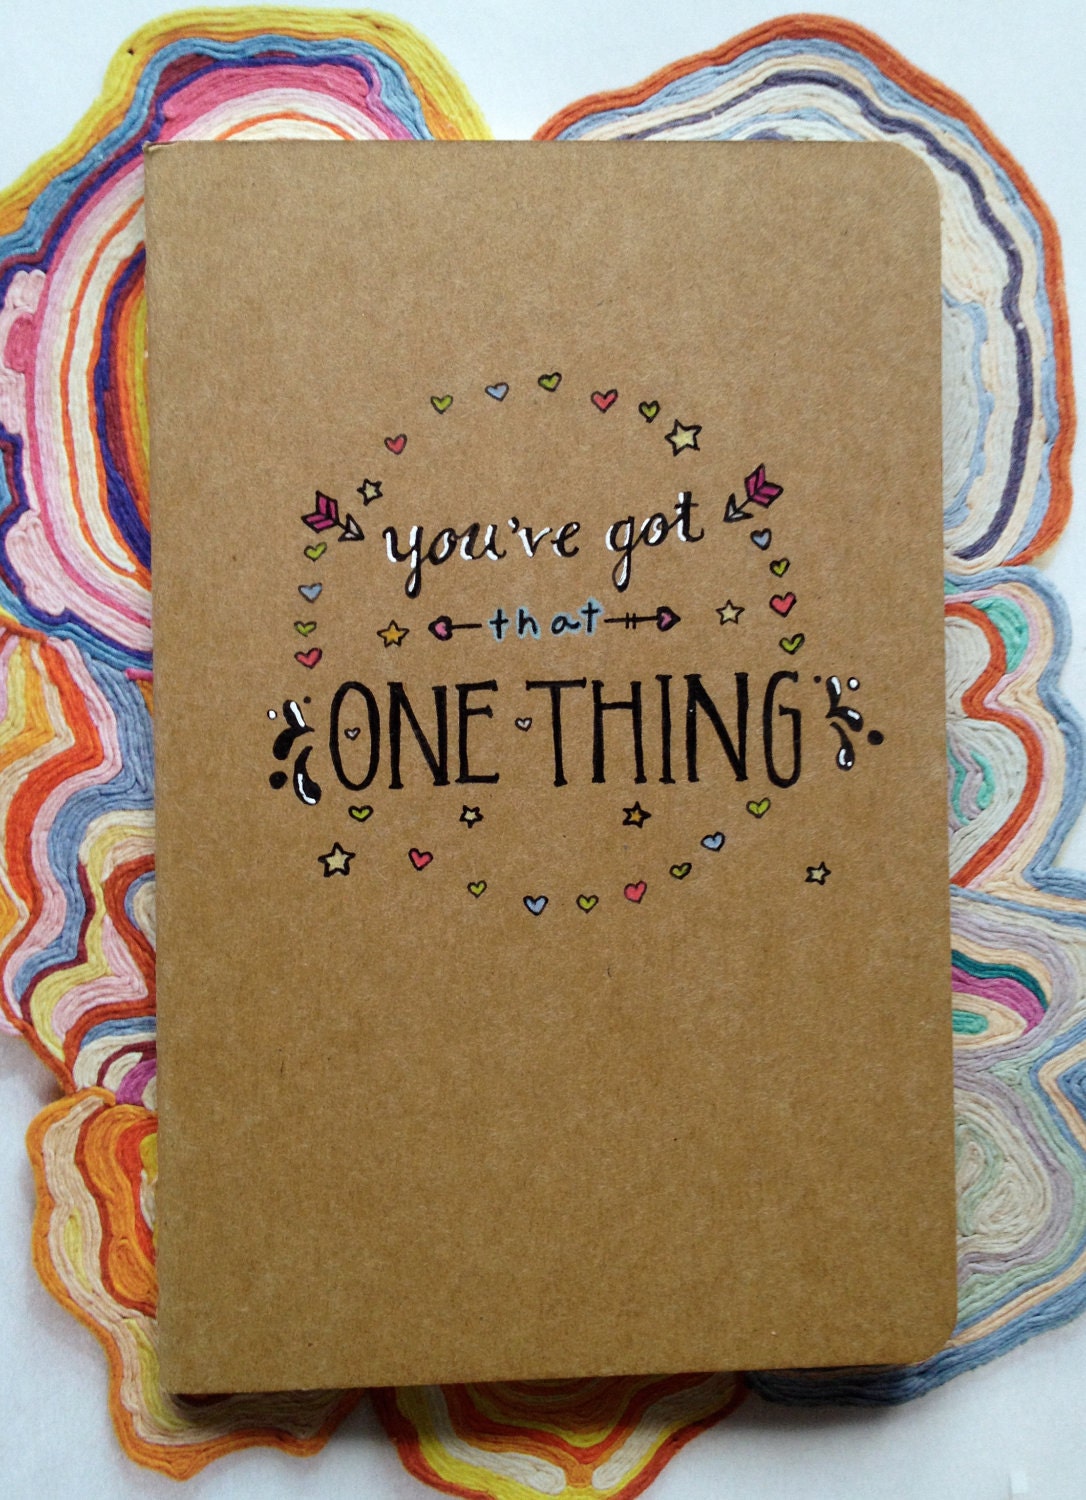 you've got
that
ONE THING